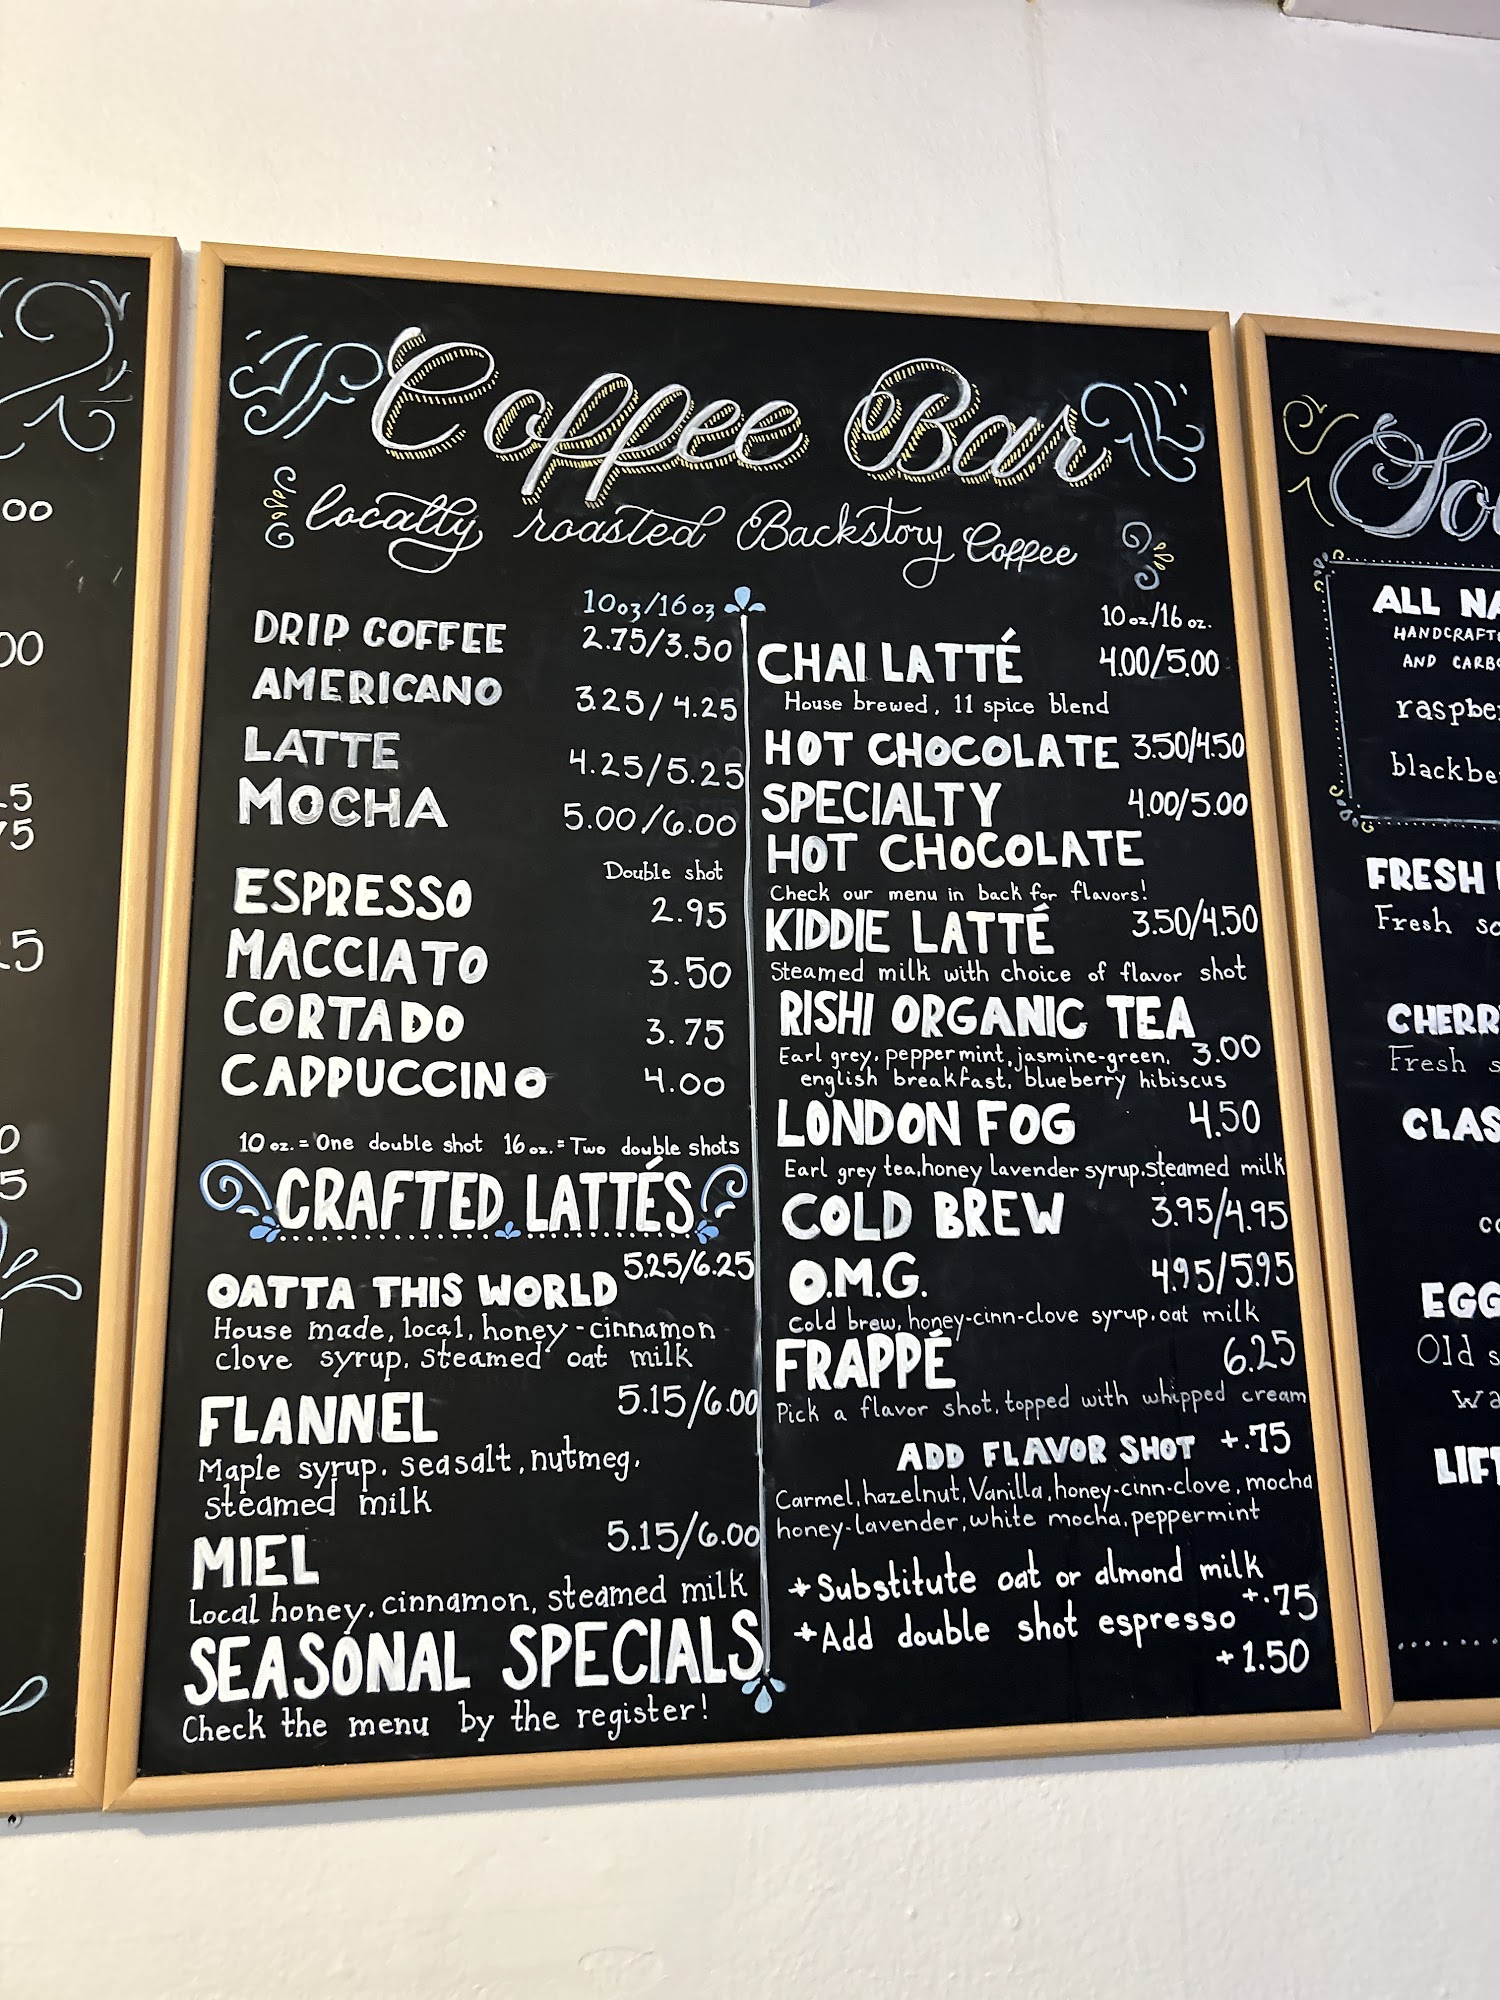 Coffee Bar
locally roasted Backstory Coffee
10oz/16oz
DRIP COFFEE 2.75/3.50
AMERICANO 3.25/4.25
LATTE 4.25/5.25
MOCHA 5.00/6.00
Double shot
ESPRESSO 2.95
MACCIATO 3.50
CORTADO 3.75
CAPPUCCINO 4.00
10 oz. = One double shot 16 oz. = Two double shots
CRAFTED LATTÉS
OATTA THIS WORLD 5.25/6.25
House made, local, honey-cinnamon
clove syrup. steamed oat milk
FLANNEL 5.15/6.00
Maple syrup. seasalt, nutmeg,
steamed milk
MIEL 5.15/6.00
Local honey, cinnamon, steamed milk
SEASONAL SPECIALS
Check the menu by the register!
10 oz/16 oz.
CHAI LATTÉ 4.00/5.00
House brewed, 11 spice blend
HOT CHOCOLATE 3.50/4.50
SPECIALTY 4.00/5.00
HOT CHOCOLATE
Check our menu in back for flavors!
KIDDIE LATTÉ 3.50/4.50
Steamed milk with choice of flavor shot
RISHI ORGANIC TEA
Earl grey, peppermint, jasmine-green, 3.00
english breakfast, blueberry hibiscus
LONDON FOG 4.50
Earl grey tea, honey lavender syrup. steamed milk
COLD BREW 3.95/4.95
O.M.G. 4.95/5.95
Cold brew, honey-cinn-clove syrup, oat milk
FRAPPÉ 6.25
Pick a flavor shot, topped with whipped cream
ADD FLAVOR SHOT +.75
Carmel, hazelnut, Vanilla, honey-cinn-clove, mocha
honey-lavender, white mocha, peppermint
*Substitute oat or almond milk
+.75
*Add double shot espresso
+1.50
ALL
HANDCRAFT
AND CARB
FRESH
Fresh
CHERR
Fresh
CLAS
EGG
Old
LIFT